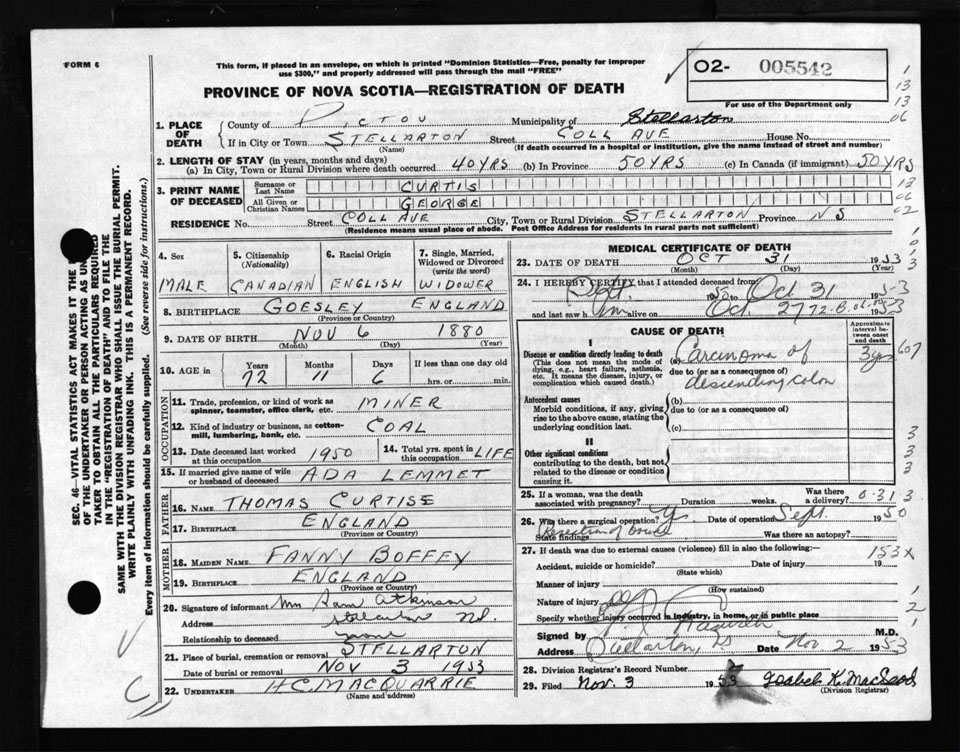 FORM 6
This form, if placed in an envelope, on which is printed "Dominion Statistics—Free, penalty for improper
use $300," and properly addressed will pass through the mail "FREE"
O2- 005542
For use of the Department only
PROVINCE OF NOVA SCOTIA—REGISTRATION OF DEATH
1. PLACE OF DEATH
County of PICTOU Municipality of Stellarton
If in City or Town STELLARTON Street COLL AVE House No.
(Name) (If death occurred in a hospital or institution, give the name instead of street and number)
2. LENGTH OF STAY (in years, months and days)
(a) In City, Town or Rural Division where death occurred 40 YRS (b) In Province 50 YRS (c) In Canada (if immigrant) 50 YRS
3. PRINT NAME OF DECEASED
Surname or Last Name CURTIS
All Given or Christian Names GEORGE
RESIDENCE No. Street COLL AVE City, Town or Rural Division STELLARTON Province NS
(Residence means usual place of abode. Post Office Address for residents in rural parts not sufficient)
4. Sex 5. Citizenship (Nationality) 6. Racial Origin 7. Single, Married, Widowed or Divorced (write the word)
MALE CANADIAN ENGLISH WIDOWER
8. BIRTHPLACE GOESLEY ENGLAND
(Province or Country)
9. DATE OF BIRTH NOV 6 1880
(Month) (Day) (Year)
10. AGE in Years Months Days If less than one day old
72 11 6 hrs. or min.
OCCUPATION
11. Trade, profession, or kind of work as spinner, teamster, office clerk, etc. MINER
12. Kind of industry or business, as cotton-mill, lumbering, bank, etc. COAL
13. Date deceased last worked at this occupation 1950 14. Total yrs. spent in this occupation LIFE
15. If married give name of wife or husband of deceased ADA LEMMET
FATHER
16. NAME THOMAS CURTISE
17. BIRTHPLACE ENGLAND
(Province or Country)
MOTHER
18. MAIDEN NAME FANNY BOFFEY
19. BIRTHPLACE ENGLAND
(Province or Country)
20. Signature of informant Mrs Sam Atkinson
Address Stellarton N.S.
Relationship to deceased
21. Place of burial, cremation or removal STELLARTON
Date of burial or removal NOV 3 1953
22. UNDERTAKER H.C. MACQUARRIE
(Name and address)
MEDICAL CERTIFICATE OF DEATH
23. DATE OF DEATH OCT 31 1953
(Month) (Day) (Year)
24. I HEREBY CERTIFY, that I attended deceased from
Sept. 1950 to Oct 31 1953
and last saw him alive on Oct. 27 1953
CAUSE OF DEATH
Approximate interval between onset and death
I
Disease or condition directly leading to death
(This does not mean the mode of dying, e.g., heart failure, asthenia, etc. It means the disease, injury, or complication which caused death.)
(a) Carcinoma of 3 yrs 607
due to (or as a consequence of)
descending colon
Antecedent causes
Morbid conditions, if any, giving rise to the above cause, stating the underlying condition last.
(b)
due to (or as a consequence of)
(c)
II
Other significant conditions
contributing to the death, but not related to the disease or condition causing it.
25. If a woman, was the death associated with pregnancy? Duration weeks. Was there a delivery?
26. Was there a surgical operation? Yes Date of operation Sept. 1950
State findings Resection of bowel Was there an autopsy?
27. If death was due to external causes (violence) fill in also the following:— 153X
Accident, suicide or homicide? Date of injury 19
(State which)
Manner of injury
(How sustained)
Nature of injury
Specify whether injury occurred in industry, in home, or in public place
Signed by M.D.
Address Stellarton, NS Date Nov 2 1953
28. Division Registrar's Record Number
29. Filed Nov. 3 1953 Isabel K. MacLeod
(Division Registrar)
SEC. 46—VITAL STATISTICS ACT MAKES IT THE
OF THE UNDERTAKER OR PERSON ACTING AS UN
TAKER TO OBTAIN ALL THE PARTICULARS REQUIRED
IN THE "REGISTRATION OF DEATH" AND TO FILE THE
SAME WITH THE DIVISION REGISTRAR WHO SHALL ISSUE THE BURIAL PERMIT.
WRITE PLAINLY WITH UNFADING INK. THIS IS A PERMANENT RECORD.
Every item of information should be carefully supplied. (See reverse side for instructions.)